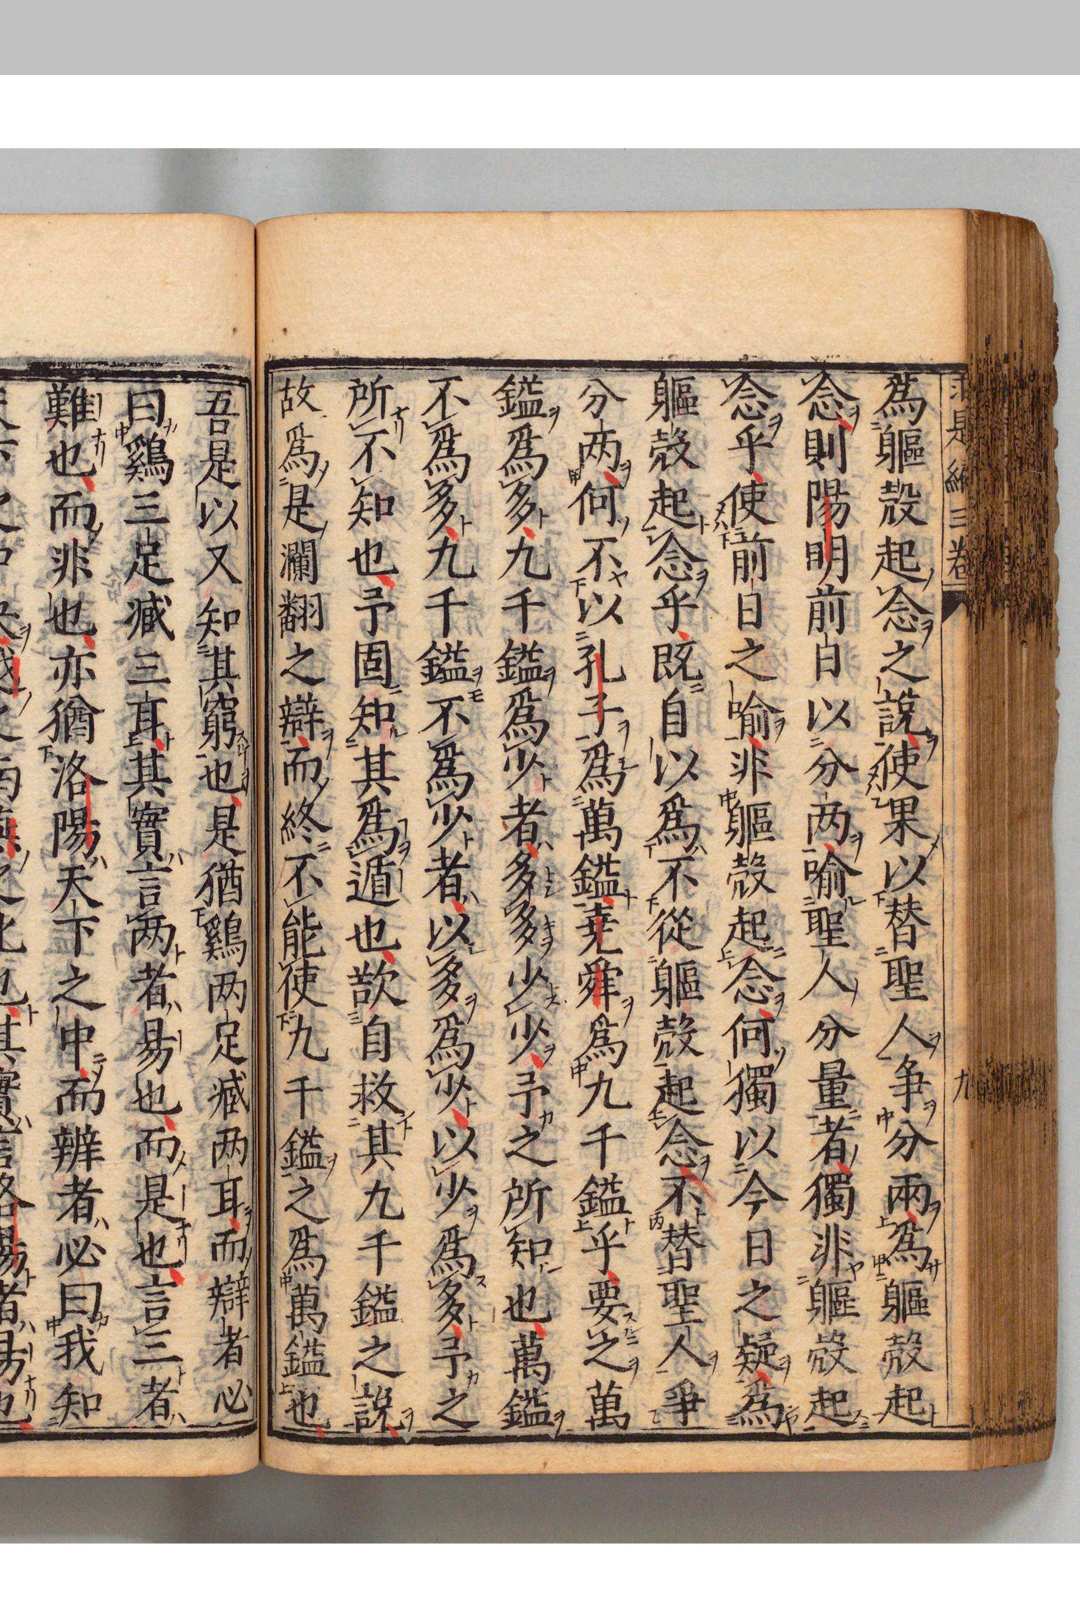 求是編三卷 九
爲軀殼起念之說使果以替聖人争分兩爲軀殼起
念則陽明前日以分两喻聖人分量者獨非軀殼起
念乎使前日之喻非軀殼起念何獨以今日之疑爲
軀殼起念乎既自以爲不從軀殼起念不替聖人爭
分两何不以孔子爲萬鎰堯舜爲九千鎰乎要之萬
鎰爲多九千鎰爲少者多多少少予之所知也萬鎰
不爲多九千鎰不爲少者以多爲少以少爲多予之
所不知也予固知其爲遁也欲自救其九千鎰之說
故爲是瀾翻之辯而終不能使九千鎰之爲萬鎰也
吾是以又知其窮也是猶鷄两足臧两耳而辯者必
曰鷄三足臧三耳其實言两者易也而是也言三者
難也而非也亦猶洛陽天下之中而辨者必曰我知